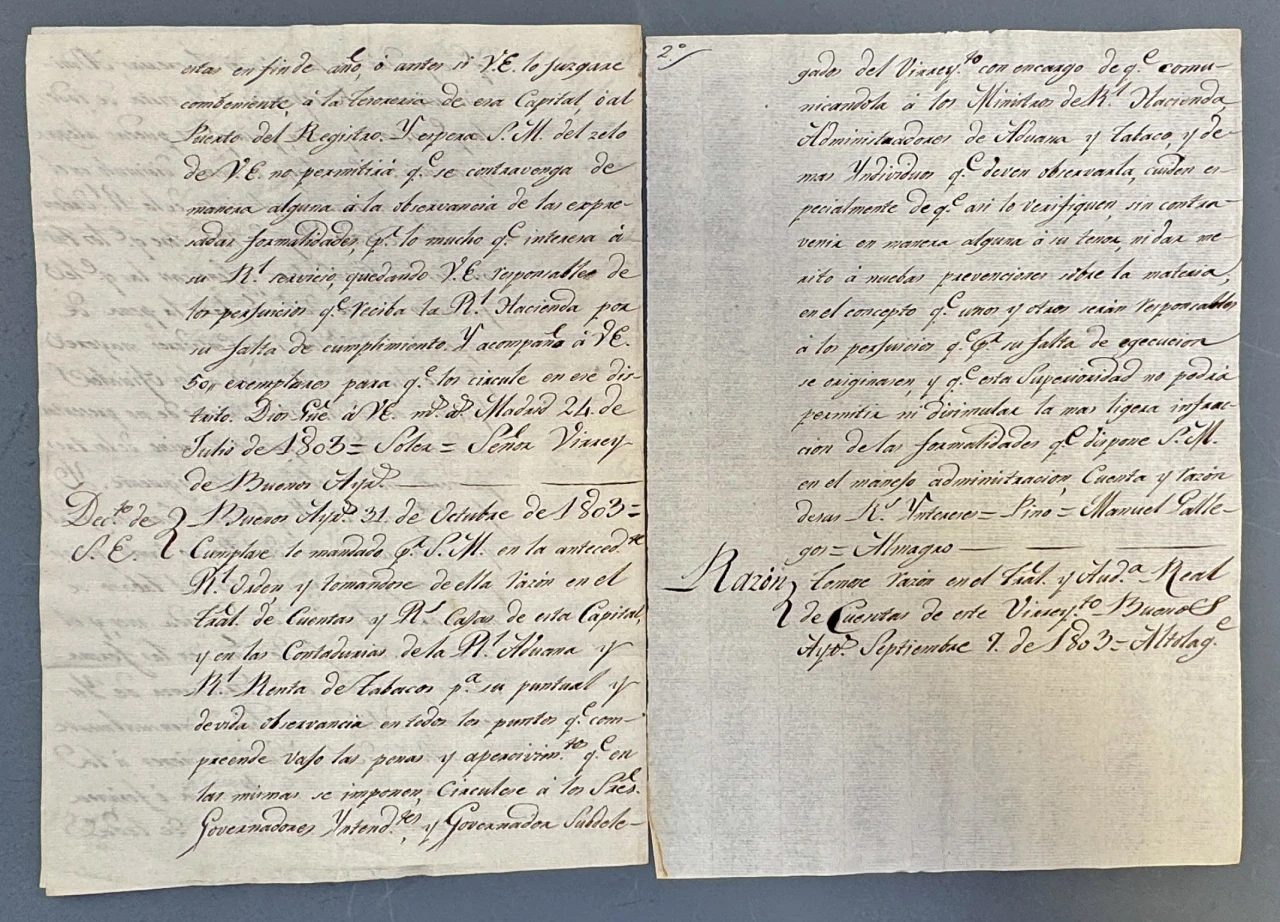 estas en fin de año, ó antes si V.E. lo juzgare
combeniente, á la tesoreria de esa Capital, ó al
Puerto del Registro. Y espera S.M. del zelo
de V.E. no permitirá q.e se contravenga de
manera alguna á la observancia de las expre-
sadas formalidades, p.r lo mucho q.e interesa á
su R.l servicio, quedando V.E. responsables de
los perjuicios q.e reciba la R.l Hacienda por
su falta de cumplimiento. Y acompaño á V.E.
50,, exemplares para q.e los circule en ese dis-
trito. Dios gue. á V.E. m.s a.s Madrid 24. de
Julio de 1803= Soler= Señor Virrey
de Buenos Ay.s
Dec.to de
S. E.
Buenos Ay.s 31. de Octubre de 1803=
Cumplase lo mandado p.r S.M. en la anteced.te
R.l Orden, y tomandose de ella razón en el
tral. de Cuentas y R.s Cajas de esta Capital,
y en las Contadurias de la R.l Aduana y
R.l Renta de tabacos p.a su puntual y
devida observancia en todos los puntos q.e com-
preende vajo las penas y apercivim.tos q.e en
las mismas se imponen, Circulese á los Sres.
Governadores Yntend.tes, y Governador Subdele-
2.°
gados del Virrey.to con encargo de q.e comu-
nicandola á los Ministros de R.l Hacienda,
Administradores de Aduana y tabaco, y de-
mas Yndividuos q.e deven observarla, cuiden es-
pecialmente de q.e asi lo verifiquen, sin contra-
venir en manera alguna á su tenor, ni dar me-
rito á nuebas prevenciones sobre la materia,
en el concepto q.e unos y otros serán responsables
á los perjuicios q.e p.r su falta de egecucion
se originasen, y q.e esta Superioridad no podrá
permitir ni disimular la mas ligera infrac-
cion de las formalidades q.e dispone S.M.
en el manejo administracion, Cuenta y razón
de sus R.s Yntereses= Pino= Manuel Galle-
gos= Almagro
Razón
tomose razón en el tral. y Aud.a Real
de Cuentas de este Virrey.to Buenos
Ay.s Septiembre 7. de 1803= Altolag.e